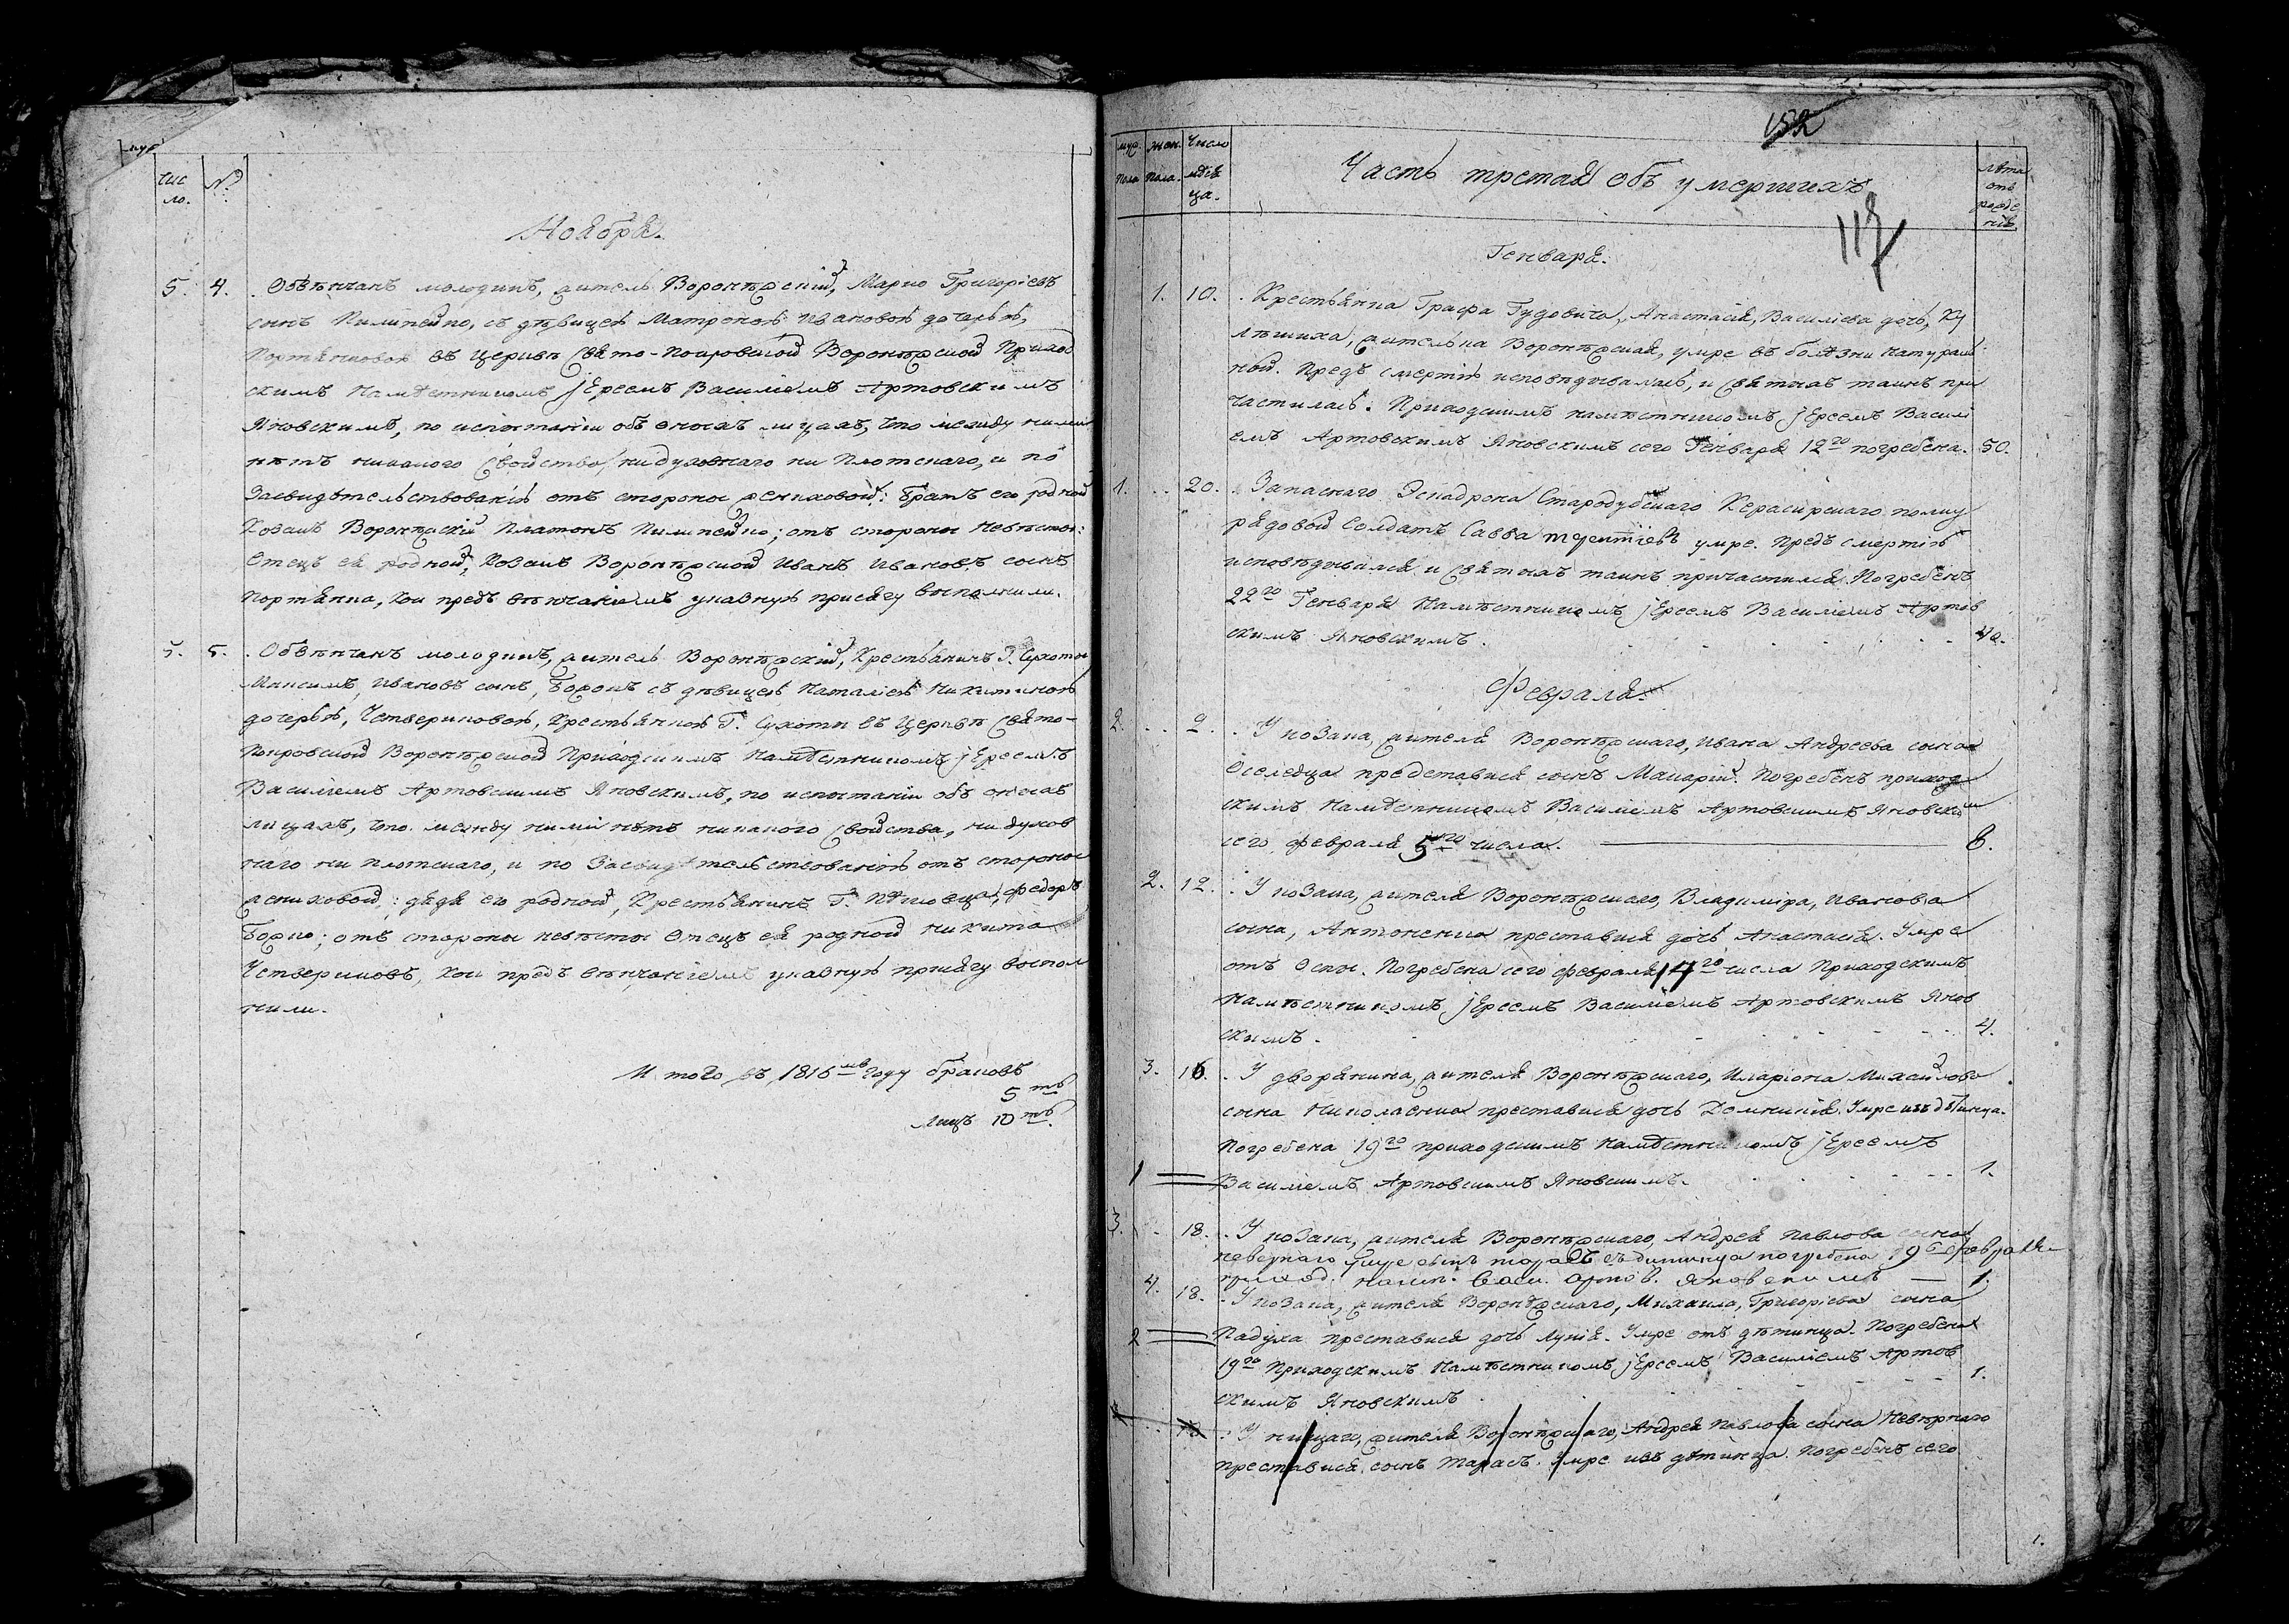 Чис
ло.
№
Ноября.
5. 4. Обвѣнчанъ молодикъ, житель Воронѣжскій, Марко Григоріевъ
сынъ Пилипейко, съ дѣвицею Матроною Ивановою дочерью,
Портянковою въ Церквѣ Свято-Покровской Воронѣжской Приход
скимъ Намѣстникомъ Іереемъ Василіемъ Артовскимъ
Яновскимъ, по испытаніи объ оныхъ лицахъ, что между ними
нѣтъ никакого свойства, ни духовнаго ни плотскаго, и по
Засвидѣтельствованію отъ стороны жениховой: братъ его родной
Козакъ Воронѣжскій Платонъ Пилипейко; отъ стороны невѣстой:
Отецъ ея родной, Козакъ Воронѣжской Иванъ Ивановъ сынъ
Портянка, кои предъ вѣнчаніемъ указную присягу выполнили.
5. 5. Обвѣнчанъ молодикъ, житель Воронѣжскій, Крестьянинъ Г. Сухоты
Максимъ, Ивановъ сынъ, Борокъ съ дѣвицею Наталіею Никитиною
дочерью, Четвериковою, крестьянкою Г. Сухоты въ Церквѣ Свято-
Покровской Воронѣжской Приходскимъ Намѣстникомъ Іереемъ
Василіемъ Артовскимъ Яновскимъ, по испытаніи объ оныхъ
лицахъ, что между ними нѣтъ никакого свойства, ни духов
наго ни плотскаго, и по Засвидѣтельствованію отъ стороны
жениховой: дядя его родной, Крестьянинъ Г. Федоръ
Борко; отъ стороны невѣсты Отецъ ея родной Никита
Четвериковъ, кои предъ вѣнчаніемъ указную присягу выпол
нили.
И того въ 1816мъ году браковъ
5ть
Лицъ 10ть.
152
муж. жен. Число
пола пола. мѣся
ца.
Часть третая объ умершихъ
117
лѣта
отъ
рожде
нія
Генваря.
1. 10. Крестьянка Графа Гудовича, Анастасія, Василіева дочь, Ку
лѣшиха, жителька Воронѣжская, умре въ болѣзни натураль
ной. Предъ смертію исповѣдывалась, и Святыхъ таинъ при
частилась. Приходскимъ намѣстникомъ Іереемъ Василі
емъ Артовскимъ Яновскимъ сего Генваря 12го погребена. 50.
1. 20. Запаснаго Эскадрона Стародубскаго Керасирскаго полку
рядовой Солдатъ Савва Терентіевъ умре. Предъ смертію
исповѣдывался и Святыхъ таинъ причастился. Погребенъ
22го Генваря Намѣстникомъ Іереемъ Василіемъ Артов
скимъ Яновскимъ. 40.
Февраля.
2. 2. У козака, жителя Воронѣжскаго, Ивана Андреева сына
Оселедца представися сынъ Макарій. Погребенъ приход
скимъ Намѣстникомъ Василіемъ Артовскимъ Яновским
сего февраля 5го числа. 6.
2. 12. У козака, жителя Воронѣжскаго, Владиміра, Иванова
сына, Антоненка преставися дочь Анастасія. Умре
отъ Оспы. Погребена сего февраля 14го числа Приходскимъ
Намѣстникомъ Іереемъ Василіемъ Артовскимъ Янов
скимъ. 4.
3. 16. У дворянина, жителя Воронѣжскаго, Иларіона Михайлова
сына Николаенка преставися дочь Домникія. Умре изъ дѣтинца.
Погребена 19го приходскимъ Намѣстникомъ Іереемъ
1 Василіемъ Артовскимъ Яновскимъ. 1.
3. 18. У козака, жителя Воронѣжскаго, Андрея Павлова сына
невернаго умре сынъ тарасъ съ дитинца погребена 19 февраля
приход. намес. Васи. Артов. Яновскимъ 1.
4. 18. У козака, жителя Воронѣжскаго, Михаила, Григоріева сына
2 Падуха преставися дочь Лукія. Умре отъ дѣтинца. Погребена
19го Приходскимъ Намѣстникомъ Іереемъ Василіемъ Артов
скимъ Яновскимъ. 1.
У нищаго, жителя Воронѣжскаго, Андрея Павлова сына Невѣрнаго
преставися сынъ Тарасъ. Умре изъ дѣтинца. Погребенъ сего
1.